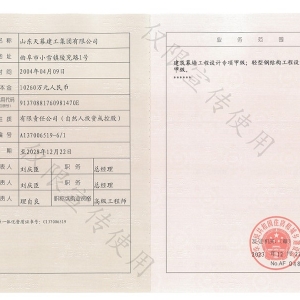 山东天幕建工集团有限公司
曲阜市小雪镇陵苑路1号
2004年04月09日
10260万元人民币
91370881760981470E
有限责任公司（自然人投资或控股）
A137006519-6/1
至2028年12月22日
责人 刘庆匣 职务 总经理
责人 刘庆匣 职务 总经理
责人 程自良 职称或执业资格 高级工程师
业务范围
建筑幕墙工程设计专项甲级；轻型钢结构工程设
甲级。
******
仅限宣传使用
仅限宣传使用
No.AF